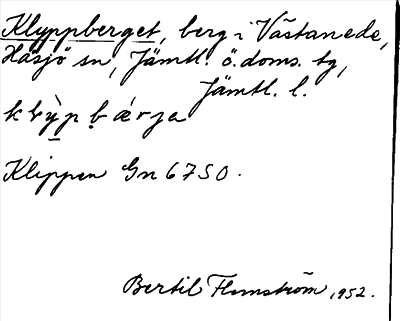 Klyppberget, berg i Västanede,
Håsjö sn, Jämtl. ö. doms. tg,
Jämtl. l.
klỳp bárja
Klippen Gn 6750.
Bertil Flemström, 1952.